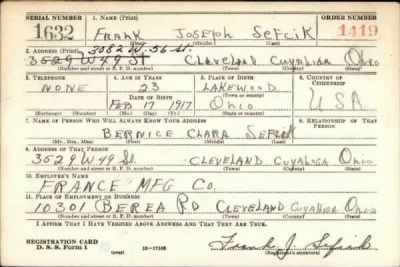 SERIAL NUMBER 1. NAME (Print) ORDER NUMBER
1632 FRANK JOSEPH SEFCIK 1419
(First) (Middle) (Last)
2. ADDRESS (Print) 3082 W. 56 St.
3529 W 49 St CLEVELAND CUYAHOGA OHIO
(Number and street or R. F. D. number) (Town) (County) (State)
3. TELEPHONE 4. AGE IN YEARS 5. PLACE OF BIRTH 6. COUNTRY OF CITIZENSHIP
NONE 23 LAKEWOOD
DATE OF BIRTH (Town or county)
FEB 17 1917 OHIO USA
(Exchange) (Number) (Mo.) (Day) (Yr.) (State or country)
7. NAME OF PERSON WHO WILL ALWAYS KNOW YOUR ADDRESS 8. RELATIONSHIP OF THAT PERSON
BERNICE CLARA SEFCIK
(Mr., Mrs., Miss) (First) (Middle) (Last)
9. ADDRESS OF THAT PERSON
3529 W 49 St. CLEVELAND CUYAHOGA OHIO
(Number and street or R. F. D. number) (Town) (County) (State)
10. EMPLOYER'S NAME
FRANCE MFG Co.
11. PLACE OF EMPLOYMENT OR BUSINESS
10301 BEREA RD CLEVELAND CUYAHOGA OHIO
(Number and street or R. F. D. number) (Town) (County) (State)
I AFFIRM THAT I HAVE VERIFIED ABOVE ANSWERS AND THAT THEY ARE TRUE.
REGISTRATION CARD
D. S. S. Form 1 (over) 16—17105 Frank J. Sefcik
(Registrant's signature)